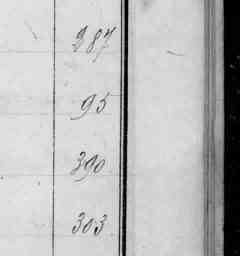 287
95
390
303